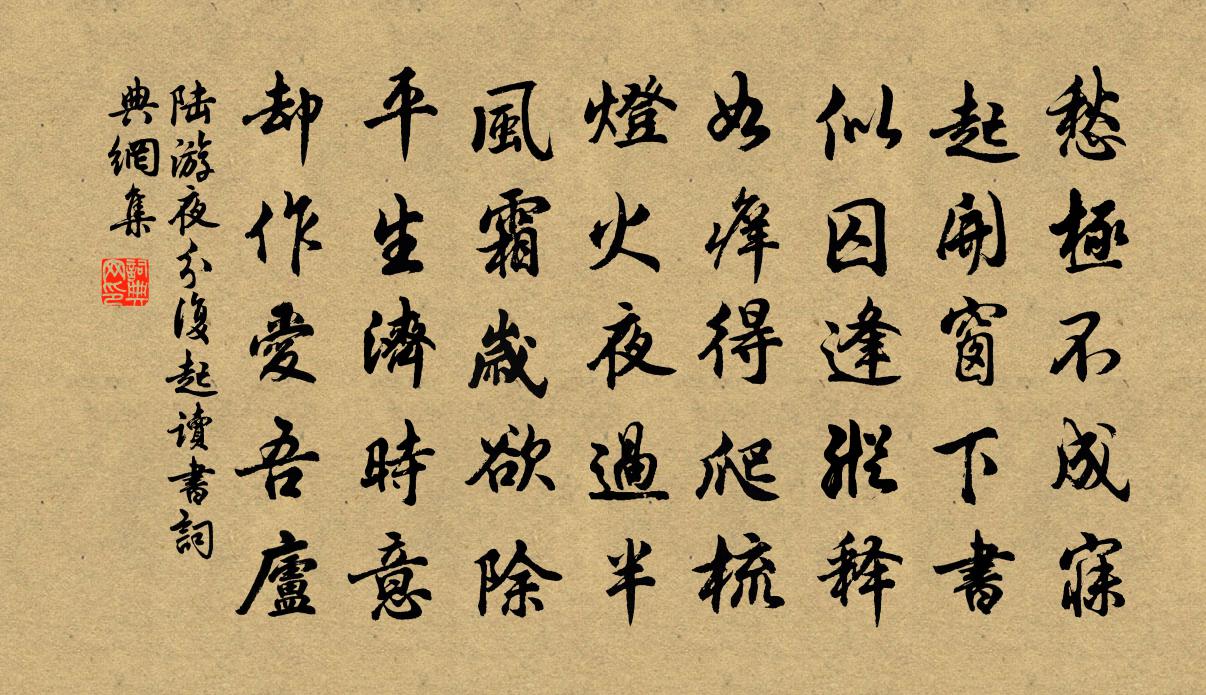 愁極不成寐
起開窗下書
似囚逢縱釋
如痒得爬梳
燈火夜過半
風霜歲欲除
平生濟時意
却作愛吾廬
陸游夜分復起讀書詞
典網集
詞典
网印